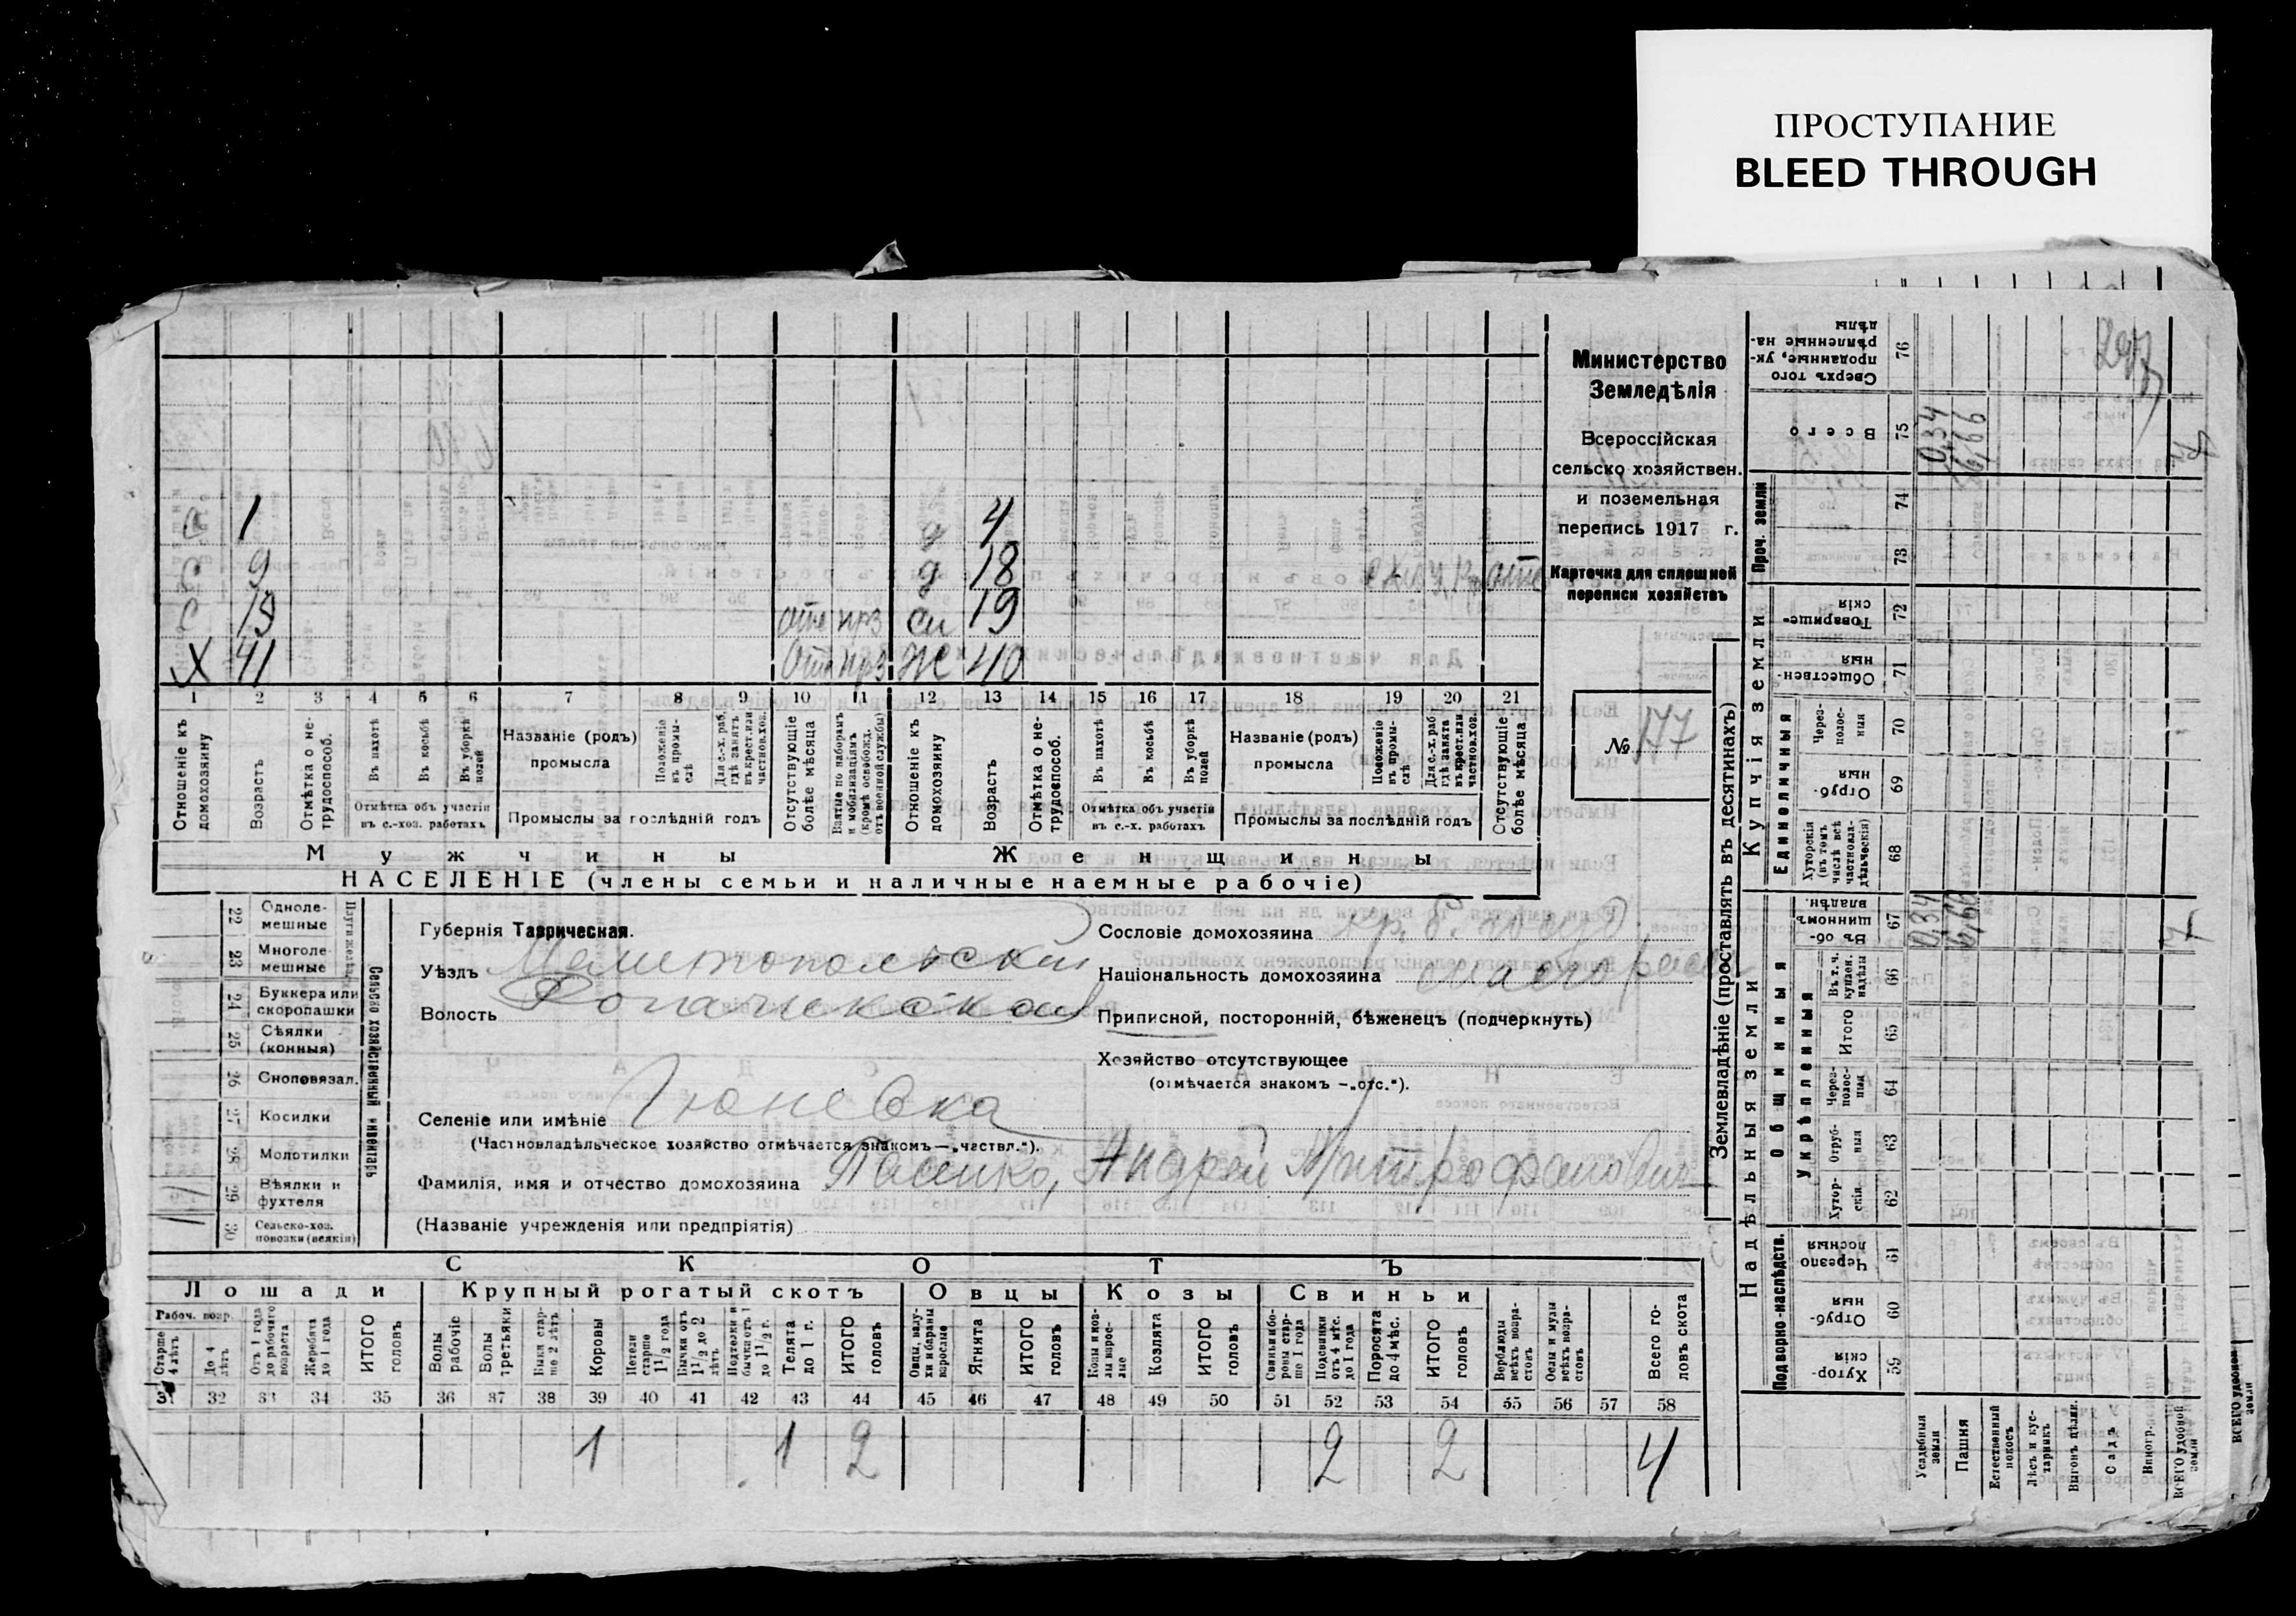 ПРОСТУПАНИЕ
BLEED THROUGH
С 1 д 4
С 9 д 18
С 19 отс прз сн 19
Х 41 Отс прз Ж 40
1 2 3 4 5 6 7 8 9 10 11 12 13 14 15 16 17 18 19 20 21
Отношеніе къ домохозяину
Возрастъ
Отмѣтка о нетрудоспособ.
Въ пахотѣ
Въ косьбѣ
Въ уборкѣ полей
Отмѣтка объ участіи въ с.-хоз. работахъ
Названіе (родъ) промысла
Положеніе въ промыслѣ
Для с.-х. раб. гдѣ занятъ въ крест. или частнов. хоз.
Промыслы за послѣдній годъ
Отсутствующіе болѣе мѣсяца
Взятые по наборамъ и мобилизаціямъ (кромѣ освобожд. отъ военной службы)
Отношеніе къ домохозяину
Возрастъ
Отмѣтка о нетрудоспособ.
Въ пахотѣ
Въ косьбѣ
Въ уборкѣ полей
Отмѣтка объ участіи въ с.-х. работахъ
Названіе (родъ) промысла
Положеніе въ промыслѣ
Для с.-х. раб. гдѣ занята въ крест. или частнов. хоз.
Промыслы за послѣдній годъ
Отсутствующіе болѣе мѣсяца
Мужчины Женщины
НАСЕЛЕНІЕ (члены семьи и наличные наемные рабочіе)
Министерство
Земледѣлія
Всероссійская
сельско хозяйствен.
и поземельная
перепись 1917 г.
Карточка для сплошной
переписи хозяйствъ
№ 177
22 Однолемешные
23 Многолемешные
24 Буккера или скоропашки
25 Сѣялки (конныя)
26 Сноповязал.
27 Косилки
28 Молотилки
29 Вѣялки и фухтеля
30 Сельско-хоз. повозки (всякія)
1
Сельско хозяйственный инвентарь
Губернія Таврическая.
Уѣздъ Мелитопольскій
Волость Рогачикская
Селеніе или имѣніе
(Частновладѣльческое хозяйство отмѣчается знакомъ—„частвл.").
Фамилія, имя и отчество домохозяина Андрей Митрофанович
(Названіе учрежденія или предпріятія)
Сословіе домохозяина
Національность домохозяина малорос
Приписной, посторонній, бѣженецъ (подчеркнуть)
Хозяйство отсутствующее
(отмѣчается знакомъ —„отс.").
СКОТЪ
Лошади Крупный рогатый скотъ Овцы Козы Свиньи
Рабоч. возр.
Старше 4 лѣтъ
До 4 лѣтъ
Отъ 1 года до рабочаго возраста
Жеребята до 1 года
ИТОГО головъ
Волы рабочіе
Волы третьяки
Быки старше 2 лѣтъ
Коровы
Нетели старше 1 1/2 года
Бычки отъ 1 1/2 до 2 лѣтъ
Подтелки и бычки отъ 1 до 1 1/2 г.
Телята до 1 г.
ИТОГО головъ
Овцы, валухи и бараны взрослые
Ягнята
ИТОГО головъ
Козы и козлы взрослые
Козлята
ИТОГО головъ
Свиньи и боровы старше 1 года
Подсвинки отъ 4 мѣс. до 1 года
Поросята до 4 мѣс.
ИТОГО головъ
Верблюды всѣхъ возрастовъ
Ослы и мулы всѣхъ возрастовъ
Всего головъ скота
31 32 33 34 35 36 37 38 39 40 41 42 43 44 45 46 47 48 49 50 51 52 53 54 55 56 57 58
1 1 2 2 2 4
Землевладѣніе (проставлять въ десятинахъ)
Надѣльныя земли
Купчія земли
Проч. земли
Подворно-наслѣдств.
Общинныя
Укрѣпленныя
Единоличныя
Сверхъ того проданные, укрѣпленные надѣлы 76
Всего 75 0,34 6,66
74
73
Товарищескія 72
Общественныя 71
Черезполосныя 70
Отрубныя 69
Хуторскія (въ томъ числѣ всѣ частновладѣльческія) 68
Въ общинномъ владѣн. 67 0,34 6,66 7
Въ т. ч. куплен. надѣлы 66
Итого 65
Черезполосныя 64
Отрубныя 63
Хуторскія 62
Черезполосныя 61
Отрубныя 60
Хуторскія 59
Усадебныя земли
Пашня
Естественный покосъ
Лѣсъ и кустарникъ
Выгонъ цѣлин.
Садъ
Виногр.
ВСЕГО удобной земли
ВСЕГО удобной земли